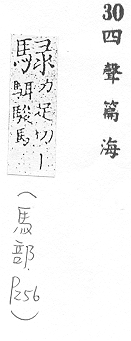 30
四聲篇海
騄力足切丨
駬駿馬
(馬部.P256)